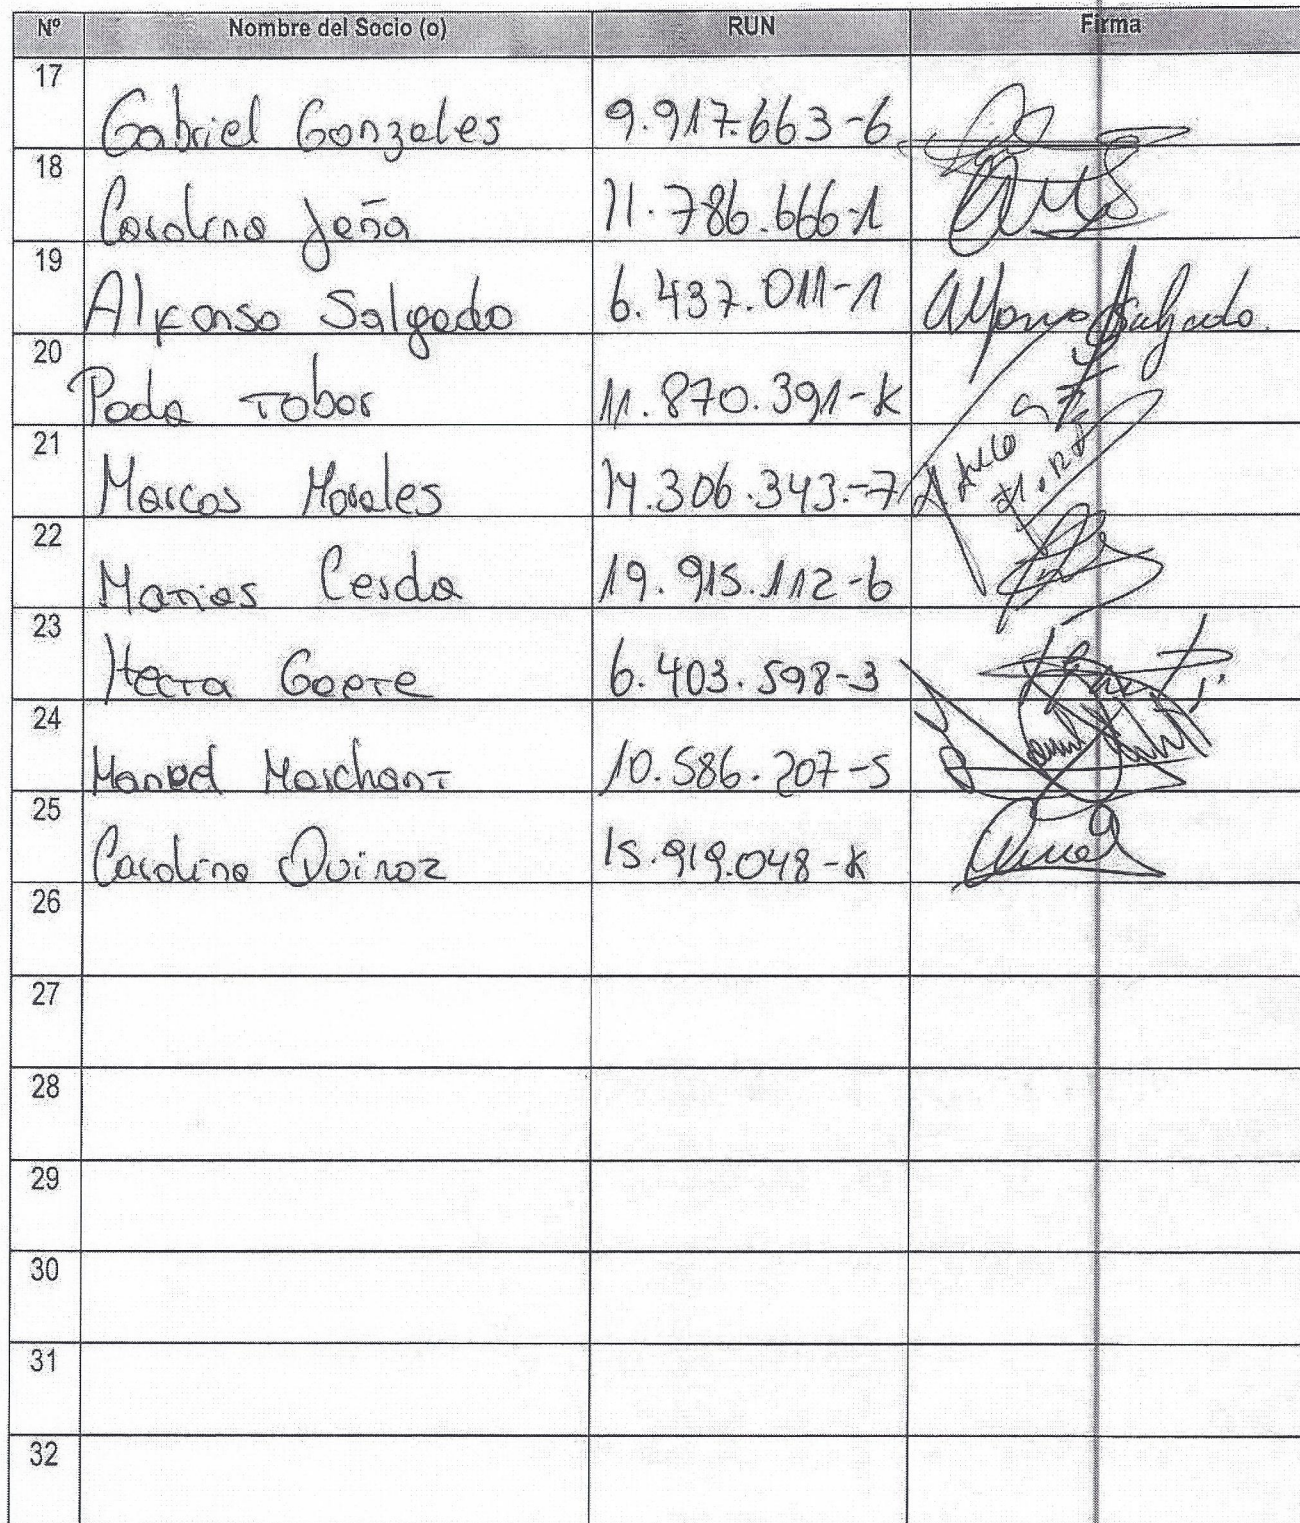 Nº Nombre del Socio (o) RUN Firma
17 Gabriel Gonzales 9.917.663-6
18 Carolina Jeña 11.786.666-1
19 Alfonso Salgado 6.437.011-1 Alfonso Salgado.
20 Poda Tobar 11.870.391-K
21 Marcos Morales 14.306.343-7
22 Matias Cerda 19.915.112-6
23 Hector Goete 6.403.598-3
24 Manuel Marchant 10.586.207-5
25 Carolina Quiroz 15.919.048-K
26
27
28
29
30
31
32